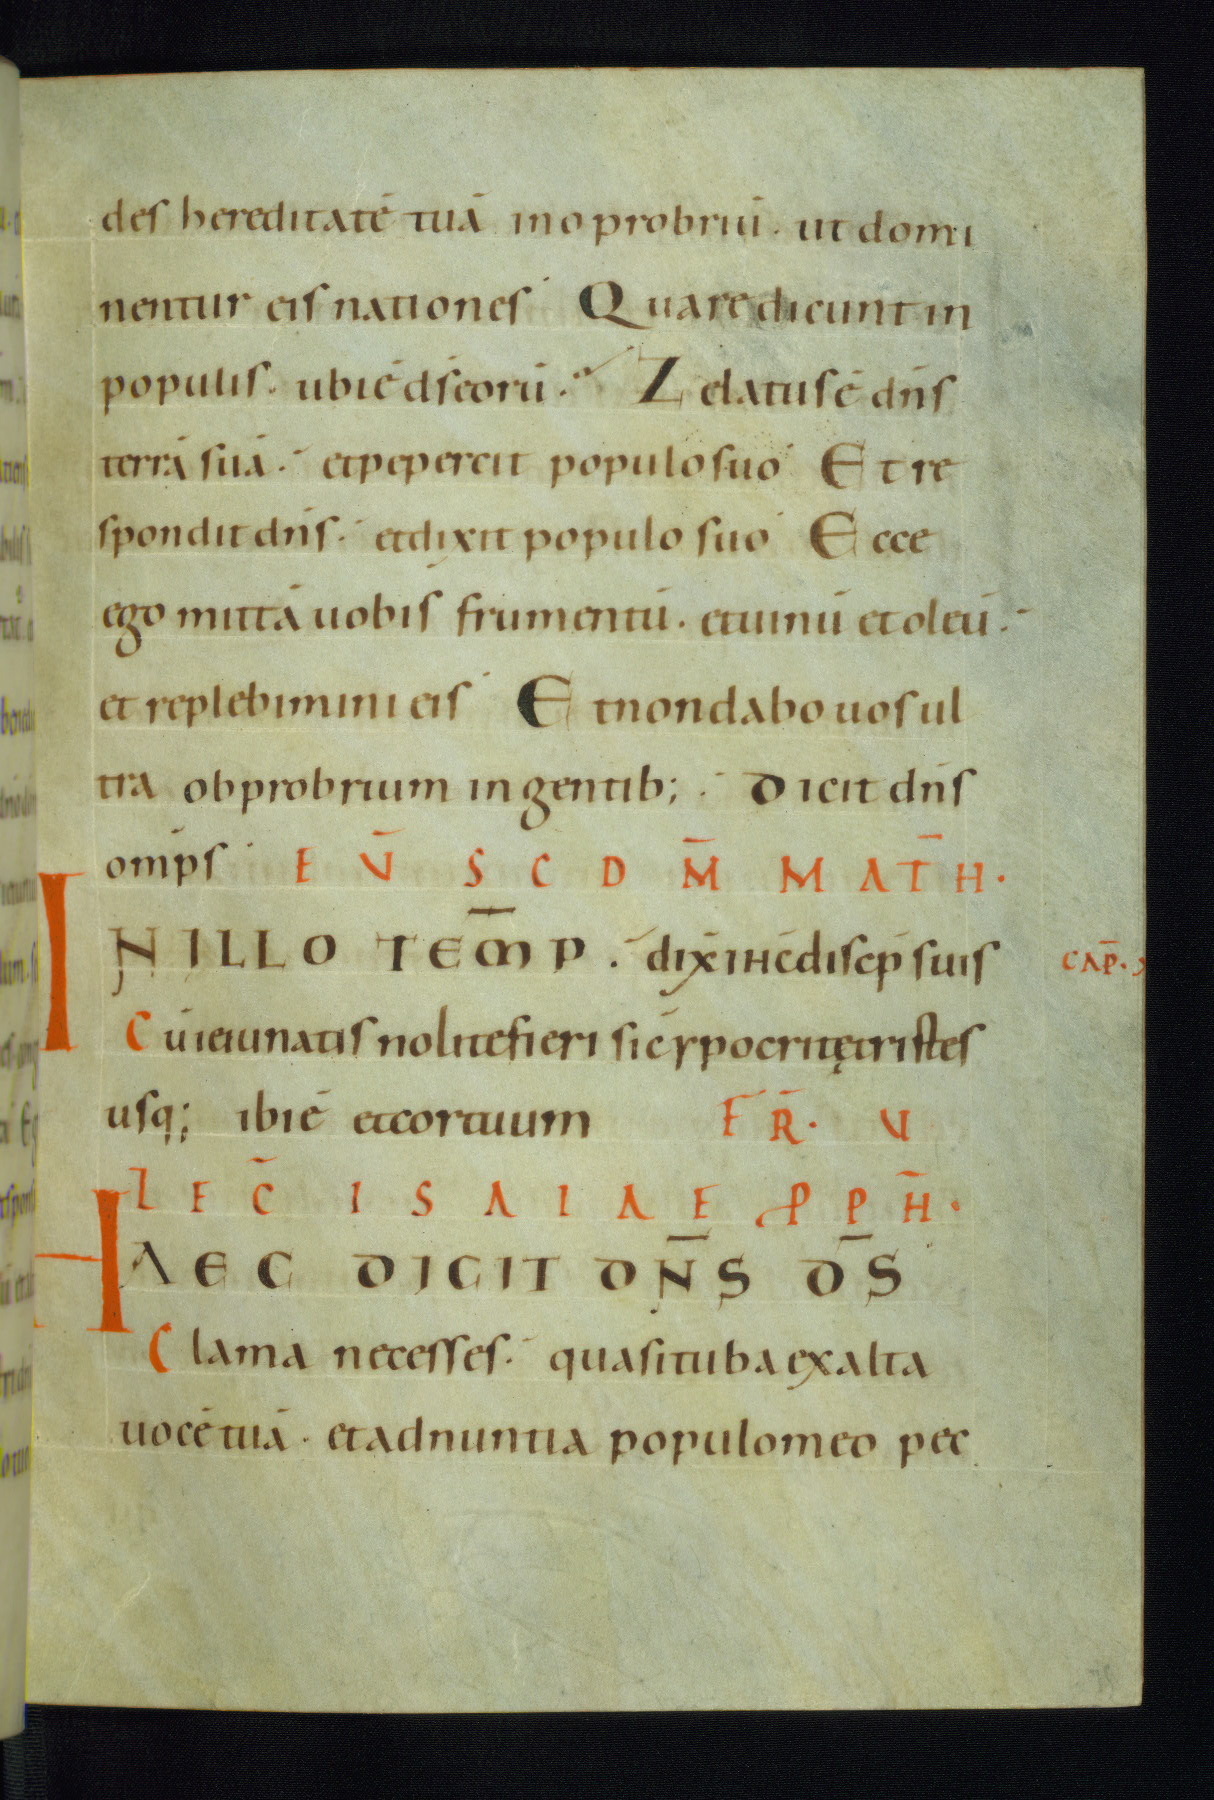 des hereditatē tuā in oprobriū. ut domi
nentur eis nationes Quare dicunt in
populis. ubi ē d̄s eorū. Zelatus ē dn̄s
terrā suā. et pepercit populo suo Et re
spondit dn̄s. et dixit populo suo Ecce
ego mittā uobis frumentū. et uinū et oleū.
et replebimini eis Et non dabo uos ul
tra obprobrium in gentib; . Dicit dn̄s
omp̄s EV̄ SCDM̄ MATH̄.
IN ILLO TEM̄P. dix̄ ihc̄ discip̄ suis CAP̄.
Cū ieiunatis nolite fieri sic̄ ypocritę tristes
usq; ibi ē et cor tuum FR̄. V
LEC̄ ISAIAE PPH̄.
HAEC DICIT DN̄S D̄S
Clama ne cesses. quasi tuba exalta
uocē tuā. et adnuntia populo meo pec